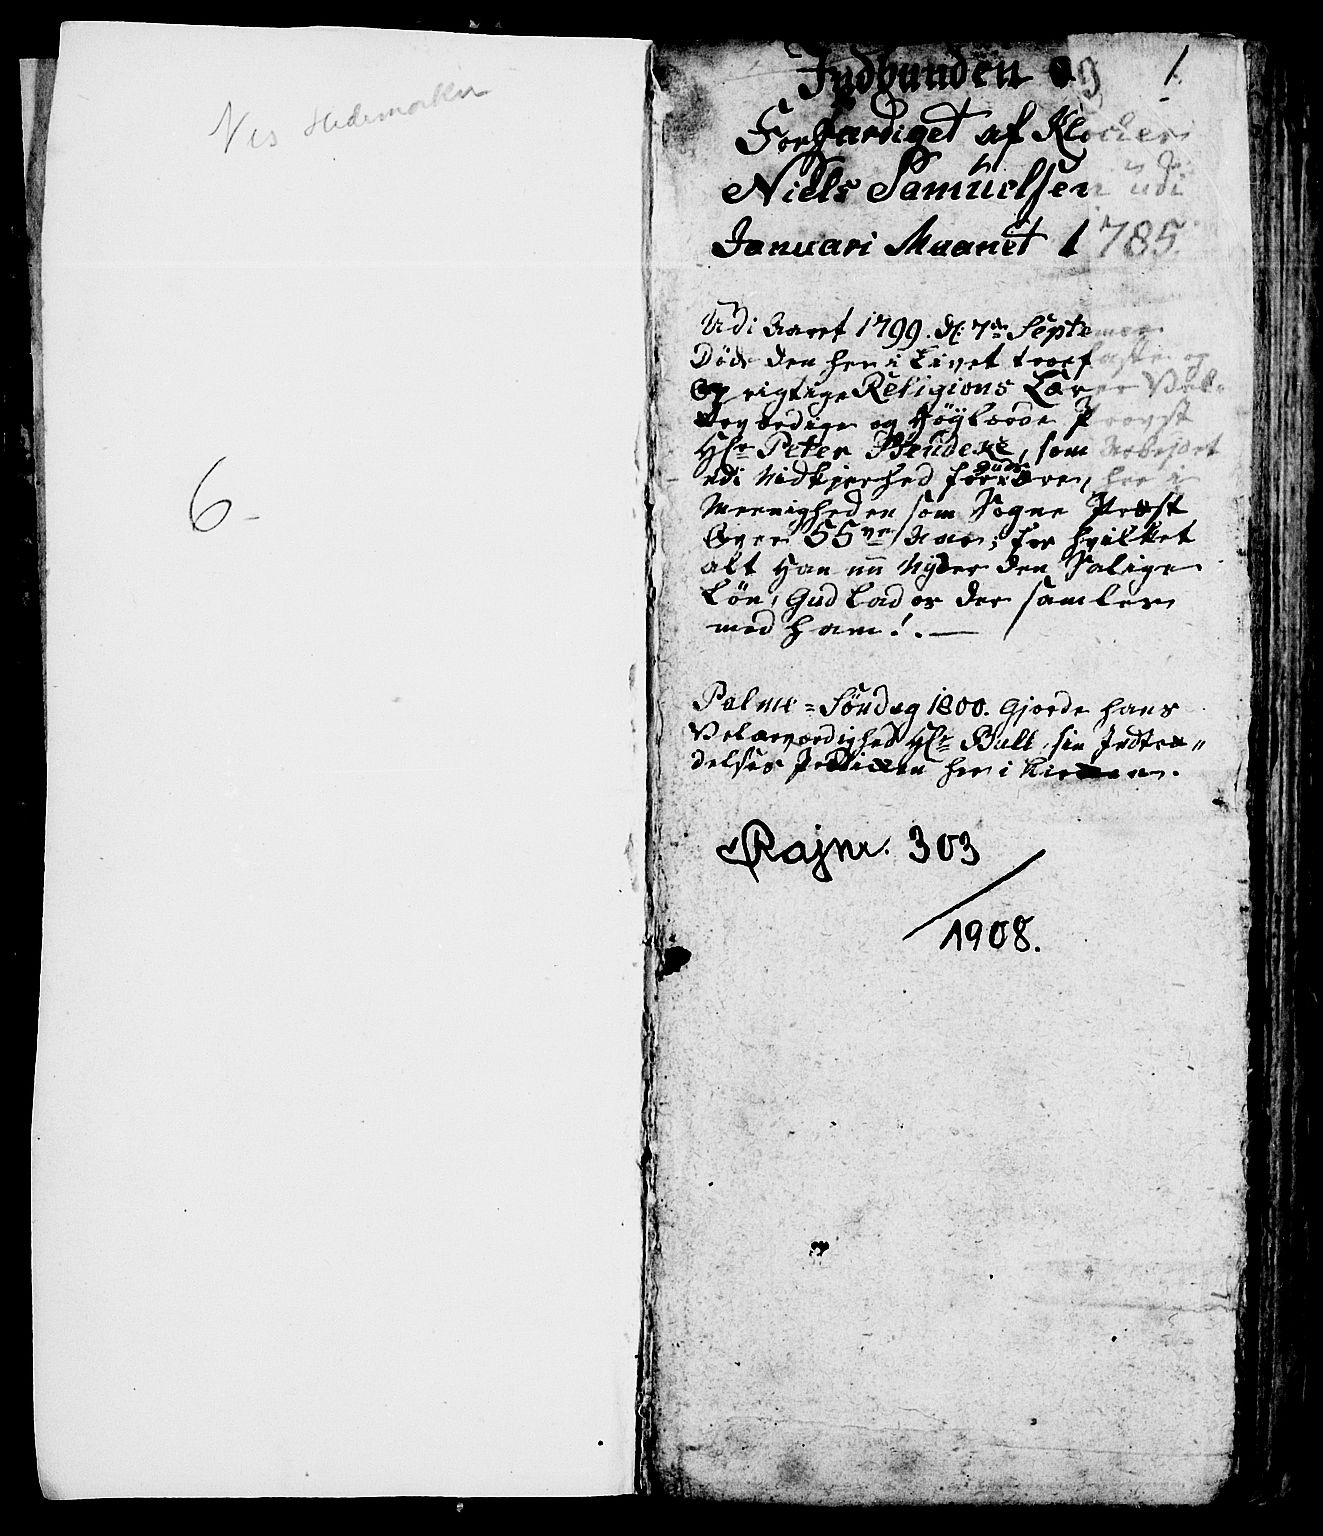 Nes Hedemarken
6-
1
Indbunden og
Forfærdiget af Klocker
Niels Samuelsen udi
Januari Maanet 1785.
Udi Aaret 1799. d: 7de Septemer
Døde den her i Livet troefaste og
Oprigtige Religions Lærer Vel-
og Høylærde Provst
Hr Peter som Arbejdet
udi Nidkjerhed for Guds Ære, her i
Meenigheden som Sogne Præst
Over 55ve Aar; for hvilket
alt Han nu Nyder den Salige
Løn, Gud lad os der samles
med ham!. —
Palme-Søndag 1800. Gjorde hans
Velærværdighed Hr Bull, sin Indtræ-
delses Prædiken her i Kirken.
Rajnr. 303
/
1908.